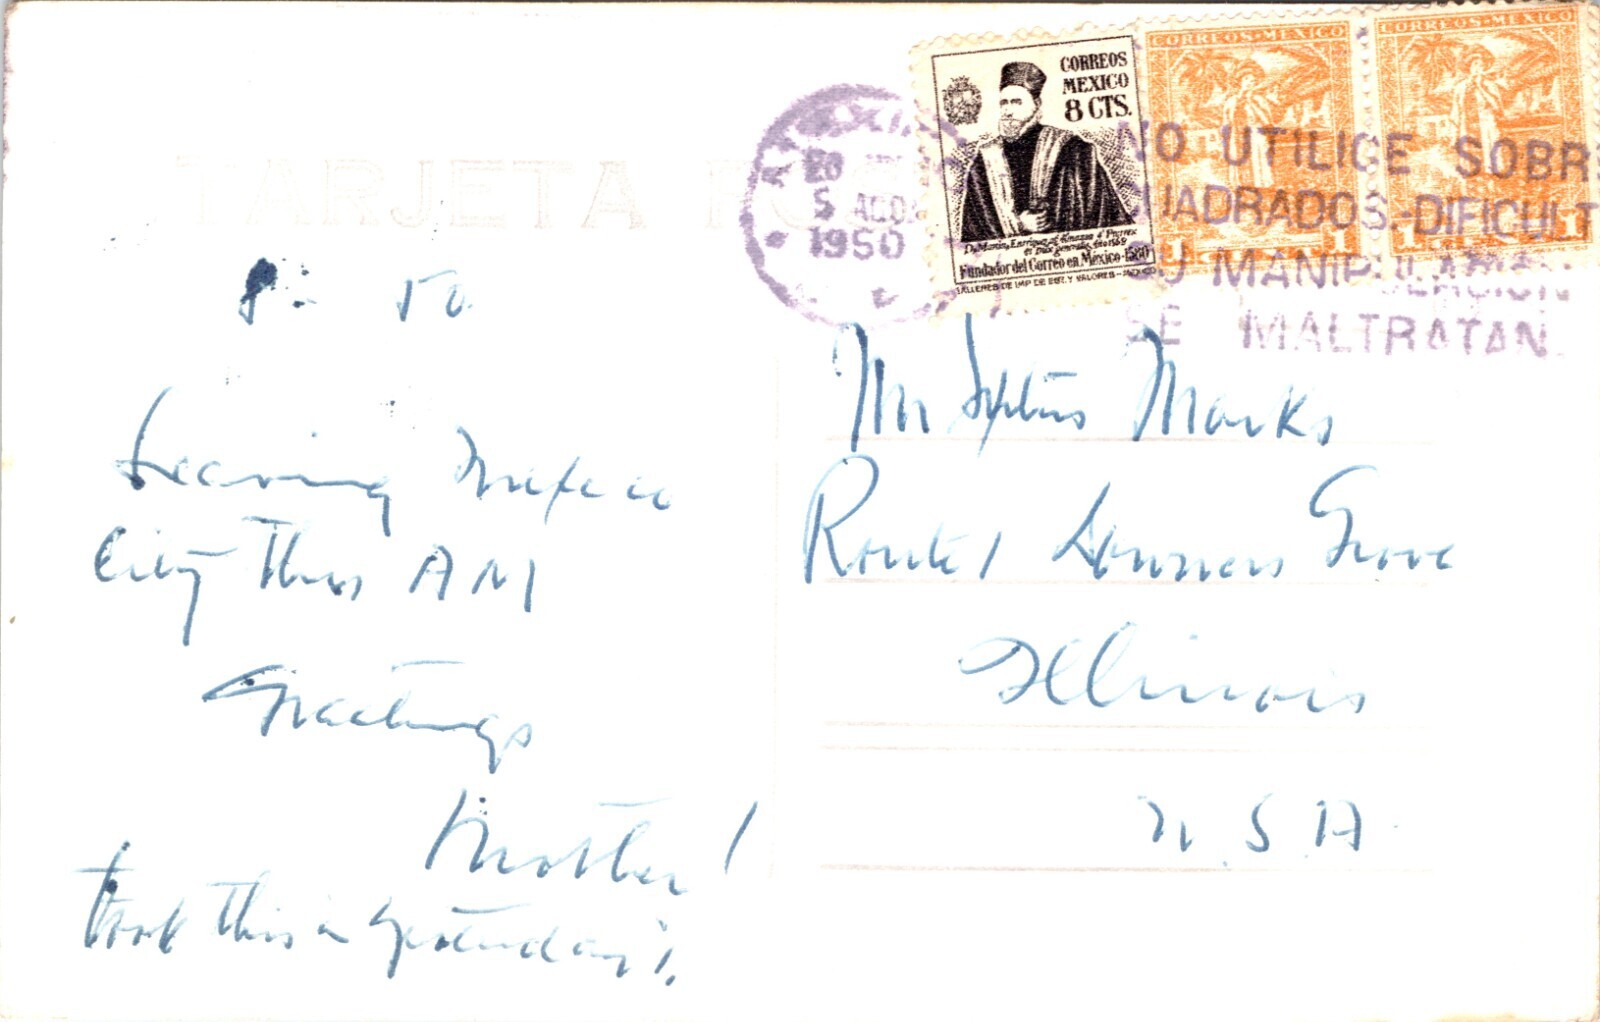 TARJETA
CORREOS
MEXICO
8 CTS.
Fundador del Correo en México-1580
TALLERES DE IMP. DE EST. Y VALORES-MEXICO
CORREOS-MEXICO
1 1
CORREOS-MEXICO
1 1
5 AGO.
1950
NO UTILICE SOBRE
CUADRADOS.-DIFICULT
SU MANIPULACION
SE MALTRATAN.
50
Leaving Mexico
City this AM
Greetings
Mother
took this yesterday
Mr Marks
Route 1 Downers Grove
Illinois
U.S.A.